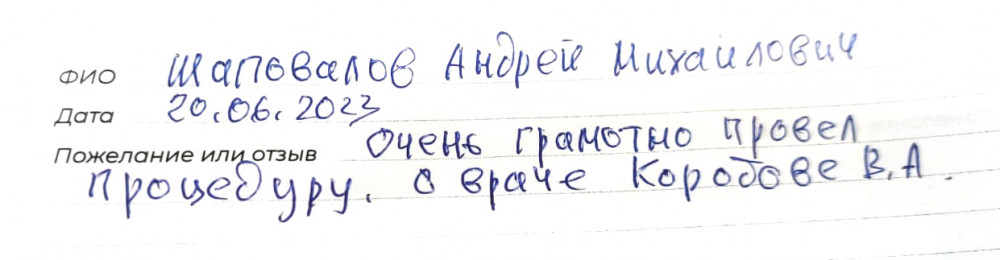 ФИО Шаповалов Андрей Михайлович
Дата 20.06.2023
Пожелание или отзыв Очень грамотно провел
процедуру. О враче Коробове В.А.